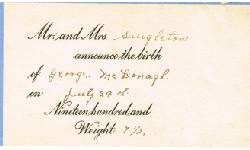 Mr. and Mrs Singleton
announce the birth
of George McDonagh
on July 29th
Nineteen hundred and
Weight 7½